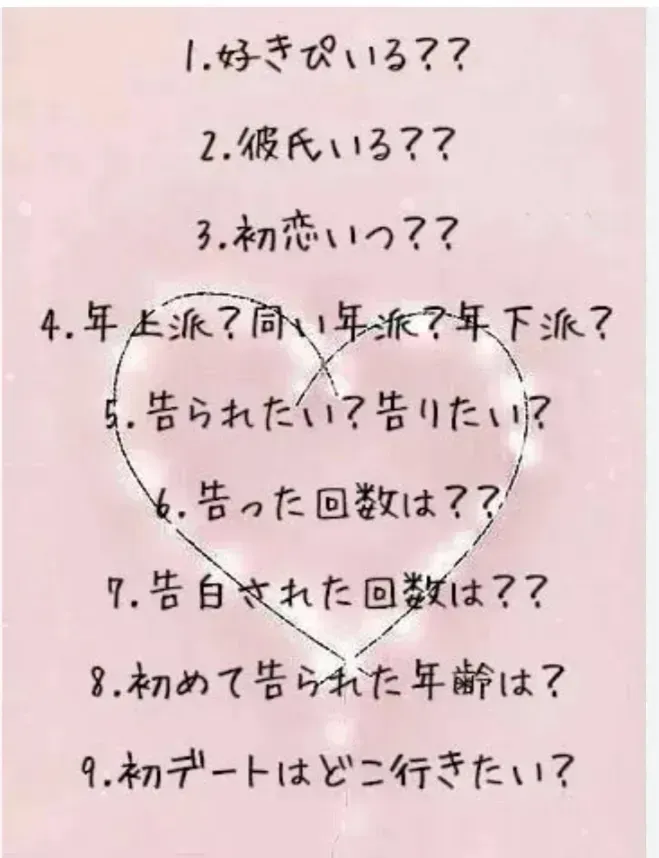 1.好きぴいる??
2.彼氏いる??
3.初恋いつ??
4.年上派?同い年派?年下派?
5.告られたい?告りたい?
6.告った回数は??
7.告白された回数は??
8.初めて告られた年齢は?
9.初デートはどこ行きたい?